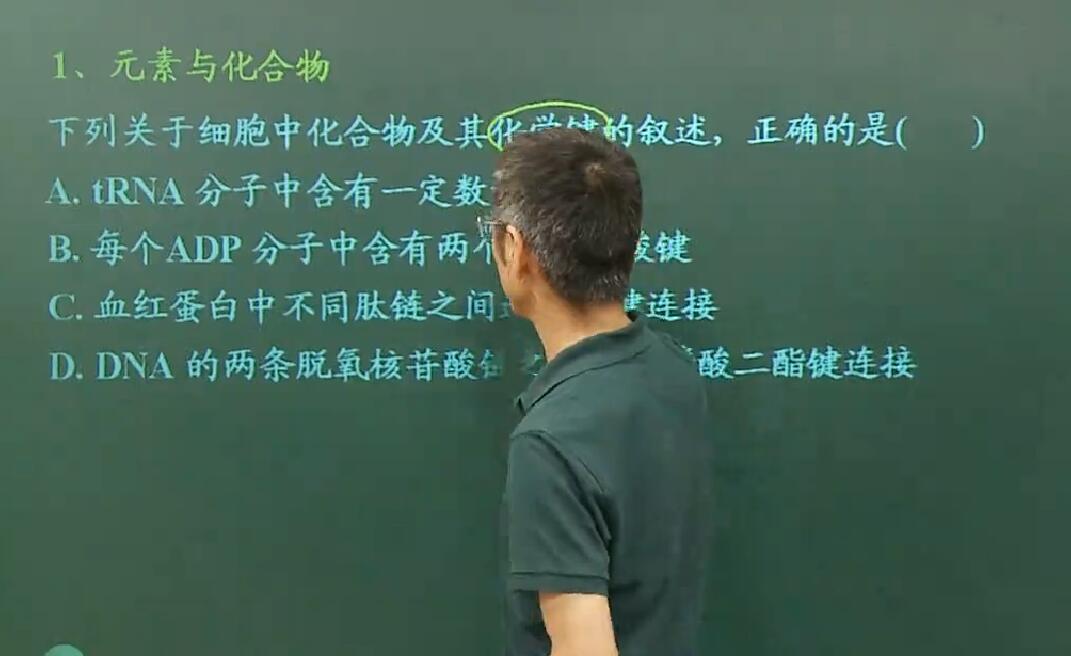 1、元素与化合物
下列关于细胞中化合物及其化学键的叙述，正确的是(    )
A. tRNA 分子中含有一定数
B. 每个ADP 分子中含有两个 酸键
C. 血红蛋白中不同肽链之间 连接
D. DNA 的两条脱氧核苷酸 酸二酯键连接